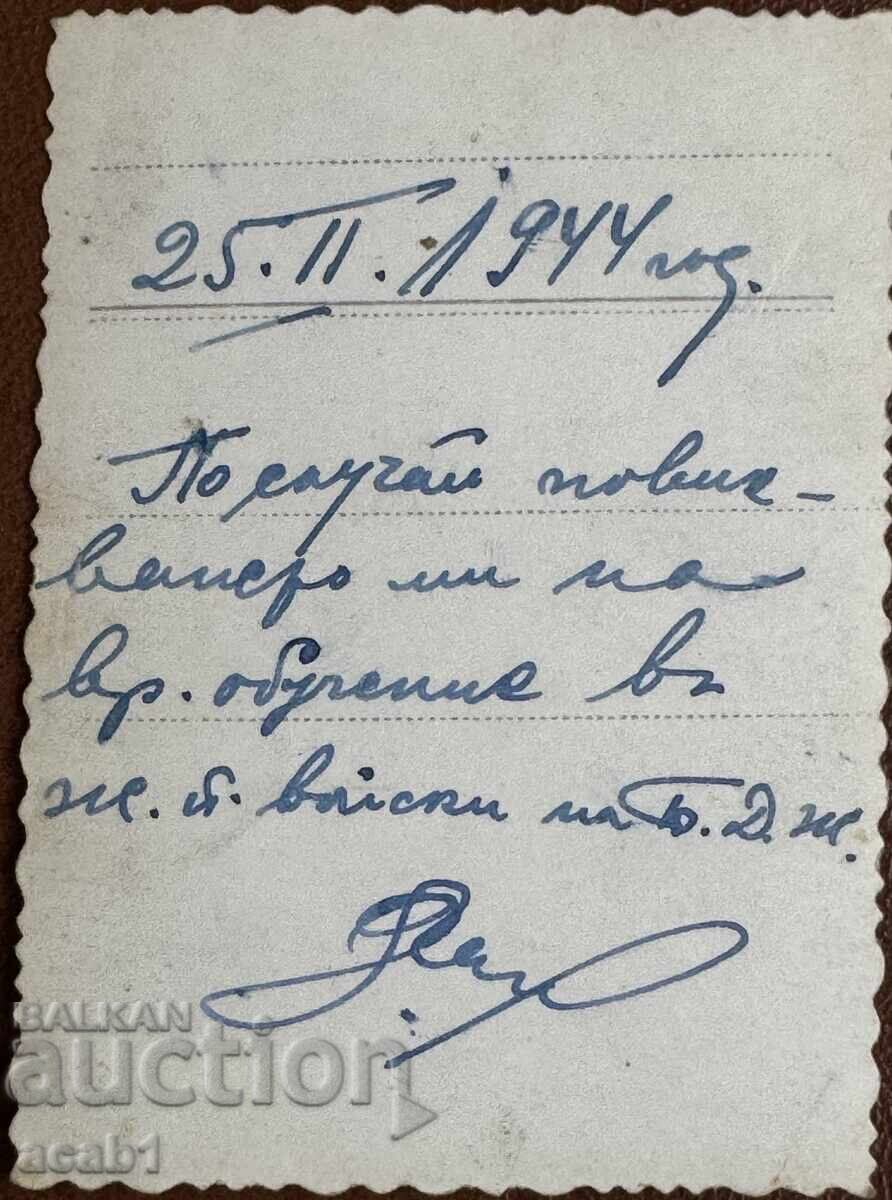 25.II.1944 год.
По случай повик-
ването ми на
вр. обучение въ
ж. п. войски на Б.Д.Ж.
BALKAN
auction
acab1